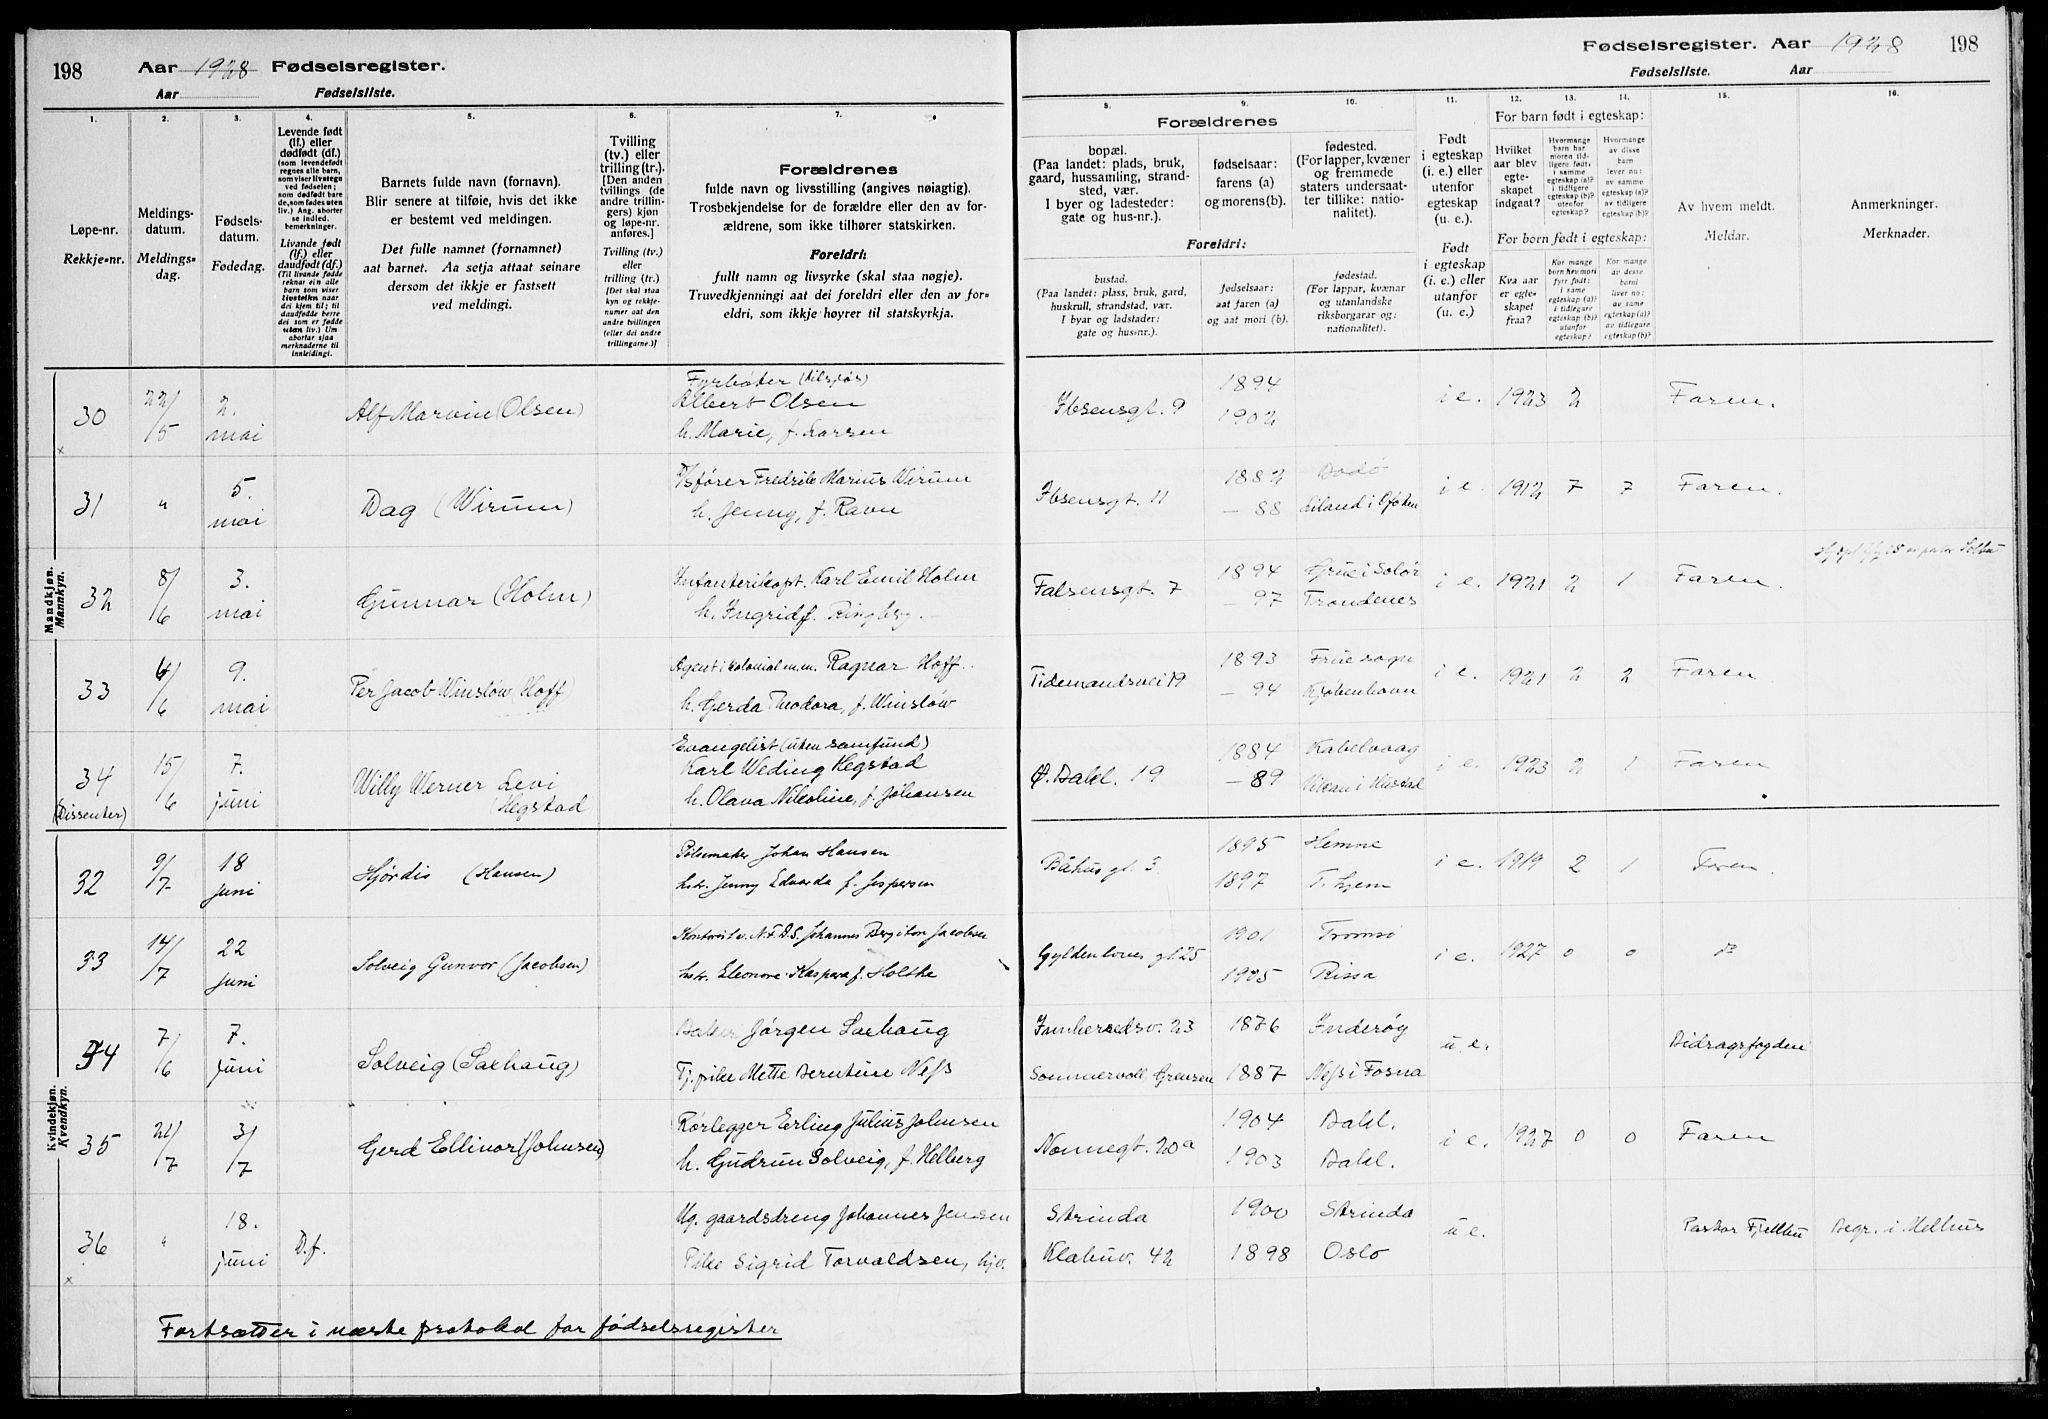 198
Aar 1928 Fødselsregister.
Aar Fødselsliste.
Fødselsregister. Aar 1928 198
Fødselsliste. Aar
1. 2. 3. 4. 5. 6. 7.
Løpe-nr.
Rekkje-nr.
Meldings-
datum.
Meldings-
dag.
Fødsels-
datum.
Fødedag.
Levende født
(lf.) eller
dødfødt (df.)
(som levendefødt
regnes alle barn,
som viser livstegn
ved fødselen;
som dødfødt bare
de, som fødes uten
liv.) Ang. aborter
se indled.
bemerkninger.
Livande født
(lf.) eller
daudfødt (df.)
(Til livande fødde
reknar ein alle
barn som viser
livsteikn naar
dei kjem til; til
daudfødde berre
dei som er fødde
utan liv.) Um
abortar sjaa
merknaderne til
innleidingi.
Barnets fulde navn (fornavn).
Blir senere at tilføie, hvis det ikke
er bestemt ved meldingen.
Det fulle namnet (fornamnet)
aat barnet. Aa setja attaat seinare
dersom det ikkje er fastsett
ved meldingi.
Tvilling
(tv.) eller
trilling (tr.).
[Den anden
tvillings (de
andre trillin-
gers) kjøn
og løpe-nr.
anføres.]
Tvilling (tv.)
eller
trilling (tr.)
[Det skal staa
kyn og rekkje-
numer aat den
andre tvillingen
(eller dei andre
trillingarne.)]
Forældrenes
fulde navn og livsstilling (angives nøiagtig).
Trosbekjendelse for de forældre eller den av for-
ældrene, som ikke tilhører statskirken.
Foreldri:
fullt namn og livsyrke (skal staa nøgje).
Truvedkjenningi aat dei foreldri eller den av for-
eldri, som ikkje høyrer til statskyrkja.
8. 9. 10. 11. 12. 13. 14. 15. 16.
Forældrenes
bopæl.
(Paa landet: plads, bruk,
gaard, hussamling, strand-
sted, vær.
I byer og ladesteder:
gate og hus-nr.).
fødselsaar:
farens (a)
og morens (b).
fødested.
(For lapper, kvæner
og fremmede
staters undersaat-
ter tillike: natio-
nalitet).
Foreldri:
bustad.
(Paa landet: plass, bruk, gard,
huskrull, strandstad, vær.
I byar og ladstader:
gate og hus-nr.).
fødselsaar:
aat faren (a)
og aat mori (b).
fødestad.
(For lappar, kvænar
og utanlandske
riksborgarar og:
nationalitet).
Født
i egteskap
(i. e.) eller
utenfor
egteskap
(u. e.).
Født
i egteskap
(i. e.) eller
utanfor
egteskap
(u. e.)
For barn født i egteskap:
Hvilket
aar blev
egte-
skapet
indgaat?
Hvormange
barn har
moren tid-
ligere født,
i samme
egteskap (a)?
i tidligere
egteskap (b)?
utenfor
egteskap?
Hvormange
av disse
barn
lever nu:
av samme
egteskap (a)?
av tidligere
egteskap (b)?
For born født i egteskap:
Kva aar
er egte-
skapet
fraa?
Kor mange
born hev mori
fyrr født:
i same
egteskap (a)?
i tidlegare
egteskap (b)?
utanfor
egteskap?
Kor mange
av desse
borni
liver no:
av same
egteskap (a)?
av tidlegare
egteskap (b)?
Av hvem meldt.
Meldar.
Anmerkninger.
Merknader.
Mandkjøn.
Mannkyn.
30 22/5 2. mai Alf Marvin (Olsen)
Fyrbøter (tilsjøs)
Albert Olsen
h. Marie, f. Larsen
Ibsensgt. 9 1894 1902 i e. 1923 2 Faren.
31 " 5. mai Dag (Wirum)
Fredrik Marius Wirum
h. Jenny, f. Ravn
Ibsensgt. 11 1882 Bodø
— 88 Liland i Ofoten i e. 1912 7 7 Faren.
32 8/6 3. mai Gunnar (Holm)
Infanterikapt. Karl Emil Holm
h. Ingrid f. Ringberg.
Falsensgt. 7 1894 Grue i Solør
— 97 Trondenes i e. 1921 2 1 Faren.
33 4/6 9. mai Per Jacob Winsløw (Hoff)
Agent i kolonial m.m. Ragnar Hoff.
h. Gerda Theodora, f. Winsløw
Tidemandsvei 19 1893 Frue sogn
— 94 Kjøbenhavn i e. 1921 2 2 Faren
34 (Dissenter) 15/6 7. juni Willy Werner Levi
(Hegstad
Evangelist (uten samfund)
Karl Weding Hegstad
h. Olava Nikoline, f. Johansen
Ø. Bakl. 19 1884 Kabelvaag
— 89 Vikan i Hustad i e. 1923 2 1 Faren
Kvindekjøn.
Kvendkyn.
32 9/7 18 juni Hjørdis (Hansen)
Pølsemaker Johan Hansen
hstr. Jenny Edvarda f. Jespersen
Båhus gt. 3. 1895 Hemne
1897 T. hjem i e. 1919 2 1 Faren.
33 14/7 22 juni Solveig Gunvor (Jacobsen)
N.F.D.S. Johannes Bergiton Jacobsen
hstr. Eleonore Kaspara f. Holthe
Gyldenløves gt. 25 1901 Tromsø
1905 Rissa i e. 1927 0 0 do
34 7/6 7. juni Solveig (Saxhaug)
Baker Jørgen Saxhaug
Tj.pike Mette Berntine Ness
Innherredsv. 23 1876 Inderøy
Sommervoll Grensen 1887 Ness i Fosna u.e. Bidragsfogden
35 21/7 3/7 Gerd Ellinor (Johnsen)
Rørlegger Erling Julius Johnsen
h. Gudrun Solveig, f. Helberg
Nonnegt. 20a 1904 Bakl.
1903 Bakl. i e. 1927 0 0 Faren
36 " 18. juni D.f.
Ug. gaardsdreng Johannes Jensen
Pike Sigrid Torvaldsen, hjv.
Strinda 1900 Strinda
Klæbuv. 42 1898 Oslo u e. Pastor Fjellbu Begr. i Melhus
Fortsætter i næste protokol for fødselsregister